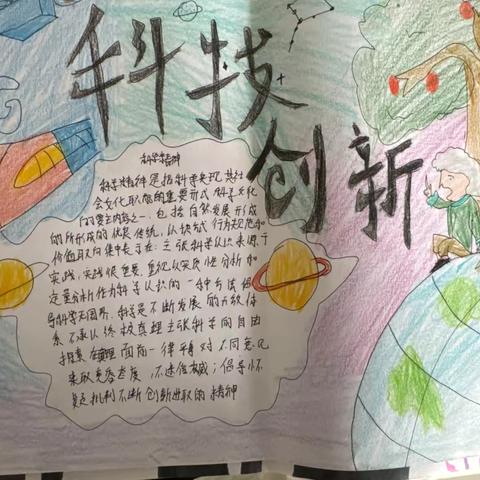 科技
创新
科学精神
科学精神是指科学实现其社
会文化职能的重要形式 科学文化
的主要内容之一，包括自然发展形成
的所形成的优良传统，认知方式 行为规范和
价值取向 集中表于在：主张科学认识来源于
实践，实践 重视以定性分析和
定量分析作为科学认识的一种方法 倡
导科学无国界，科学是不断发展的开放体
系 不承认终极真理 主张科学的自由
探索 在真理面前一律平等 对不同意见
采取宽容态度，不迷信权威；倡导怀
疑批判不断创新进取的精神